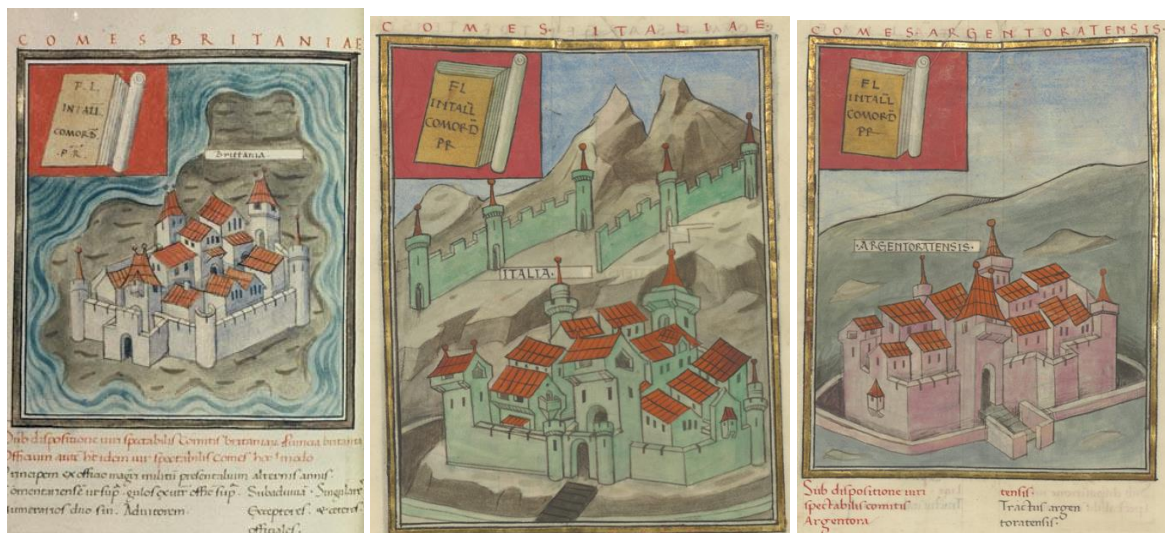 COMES BRITANIAE
F.L.
INTALL.
COMORD̄.
P.R̄.
Brittania.
Sub dispositione uiri spectabilis comitis britaniae
idem uir spectabilis comes hoc modo
Principem ex officio militū presentalium alternis annis.
Subadiuuā. Singulare
Numerarios duo Adiutorem. Exceptores. & ceteros
officiales.
COMES ITALIAE.
FL
INTALL̄
COMORD̄
PR
ITALIA.
COMES.ARGENTORATENSIS.
FL
INTALL̄
COMORD̄
PR
.ARGENTORATENSIS.
Sub dispositione uiri
spectabilis comitis
Argentora
tensis.
Tractus argen
toratensis.